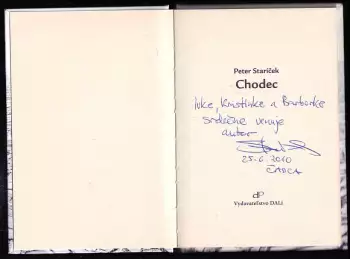 Peter Staríček
Chodec
Ivke, Kristínke a Barborke
srdečne venuje
autor
25.6 2010
ČADCA
Vydavateľstvo DALi